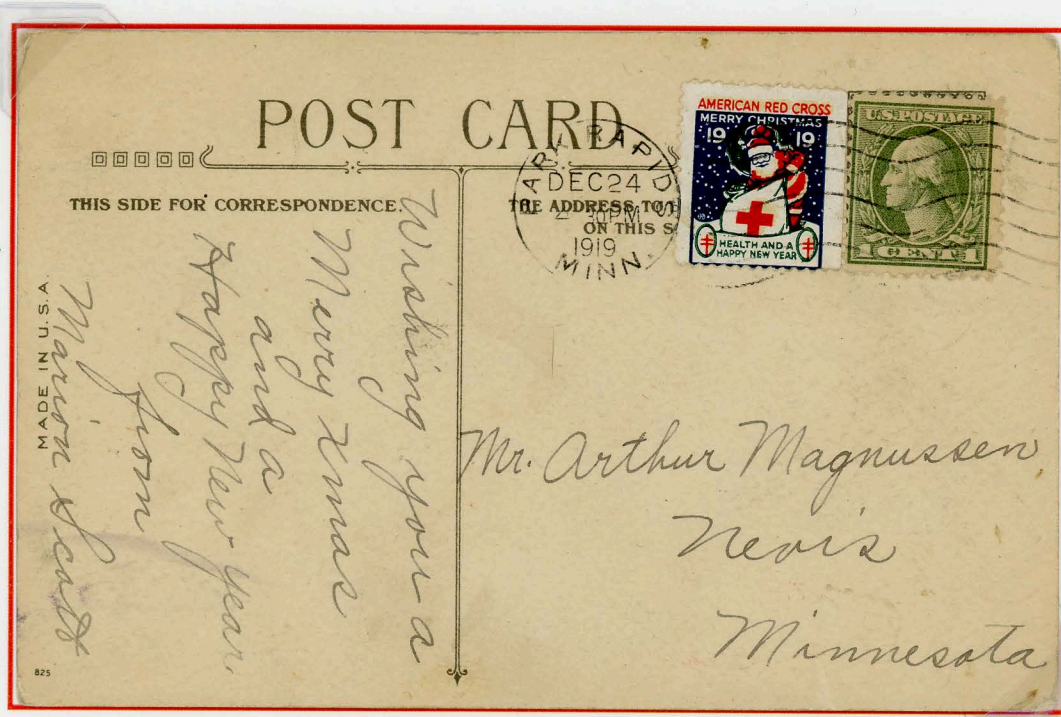 POST CARD
THIS SIDE FOR CORRESPONDENCE.
THE ADDRESS TO
ON THIS S
PARK RAPIDS
DEC 24
30 PM
1919
MINN.
AMERICAN RED CROSS
MERRY CHRISTMAS
19 19
HEALTH AND A
HAPPY NEW YEAR
U.S. POSTAGE
1 CENT 1
Wishing you a
Merry Xmas
and a
Happy New Year.
from
Marion Scott
Mr. Arthur Magnussen
Nevis
Minnesota
MADE IN U.S.A.
825